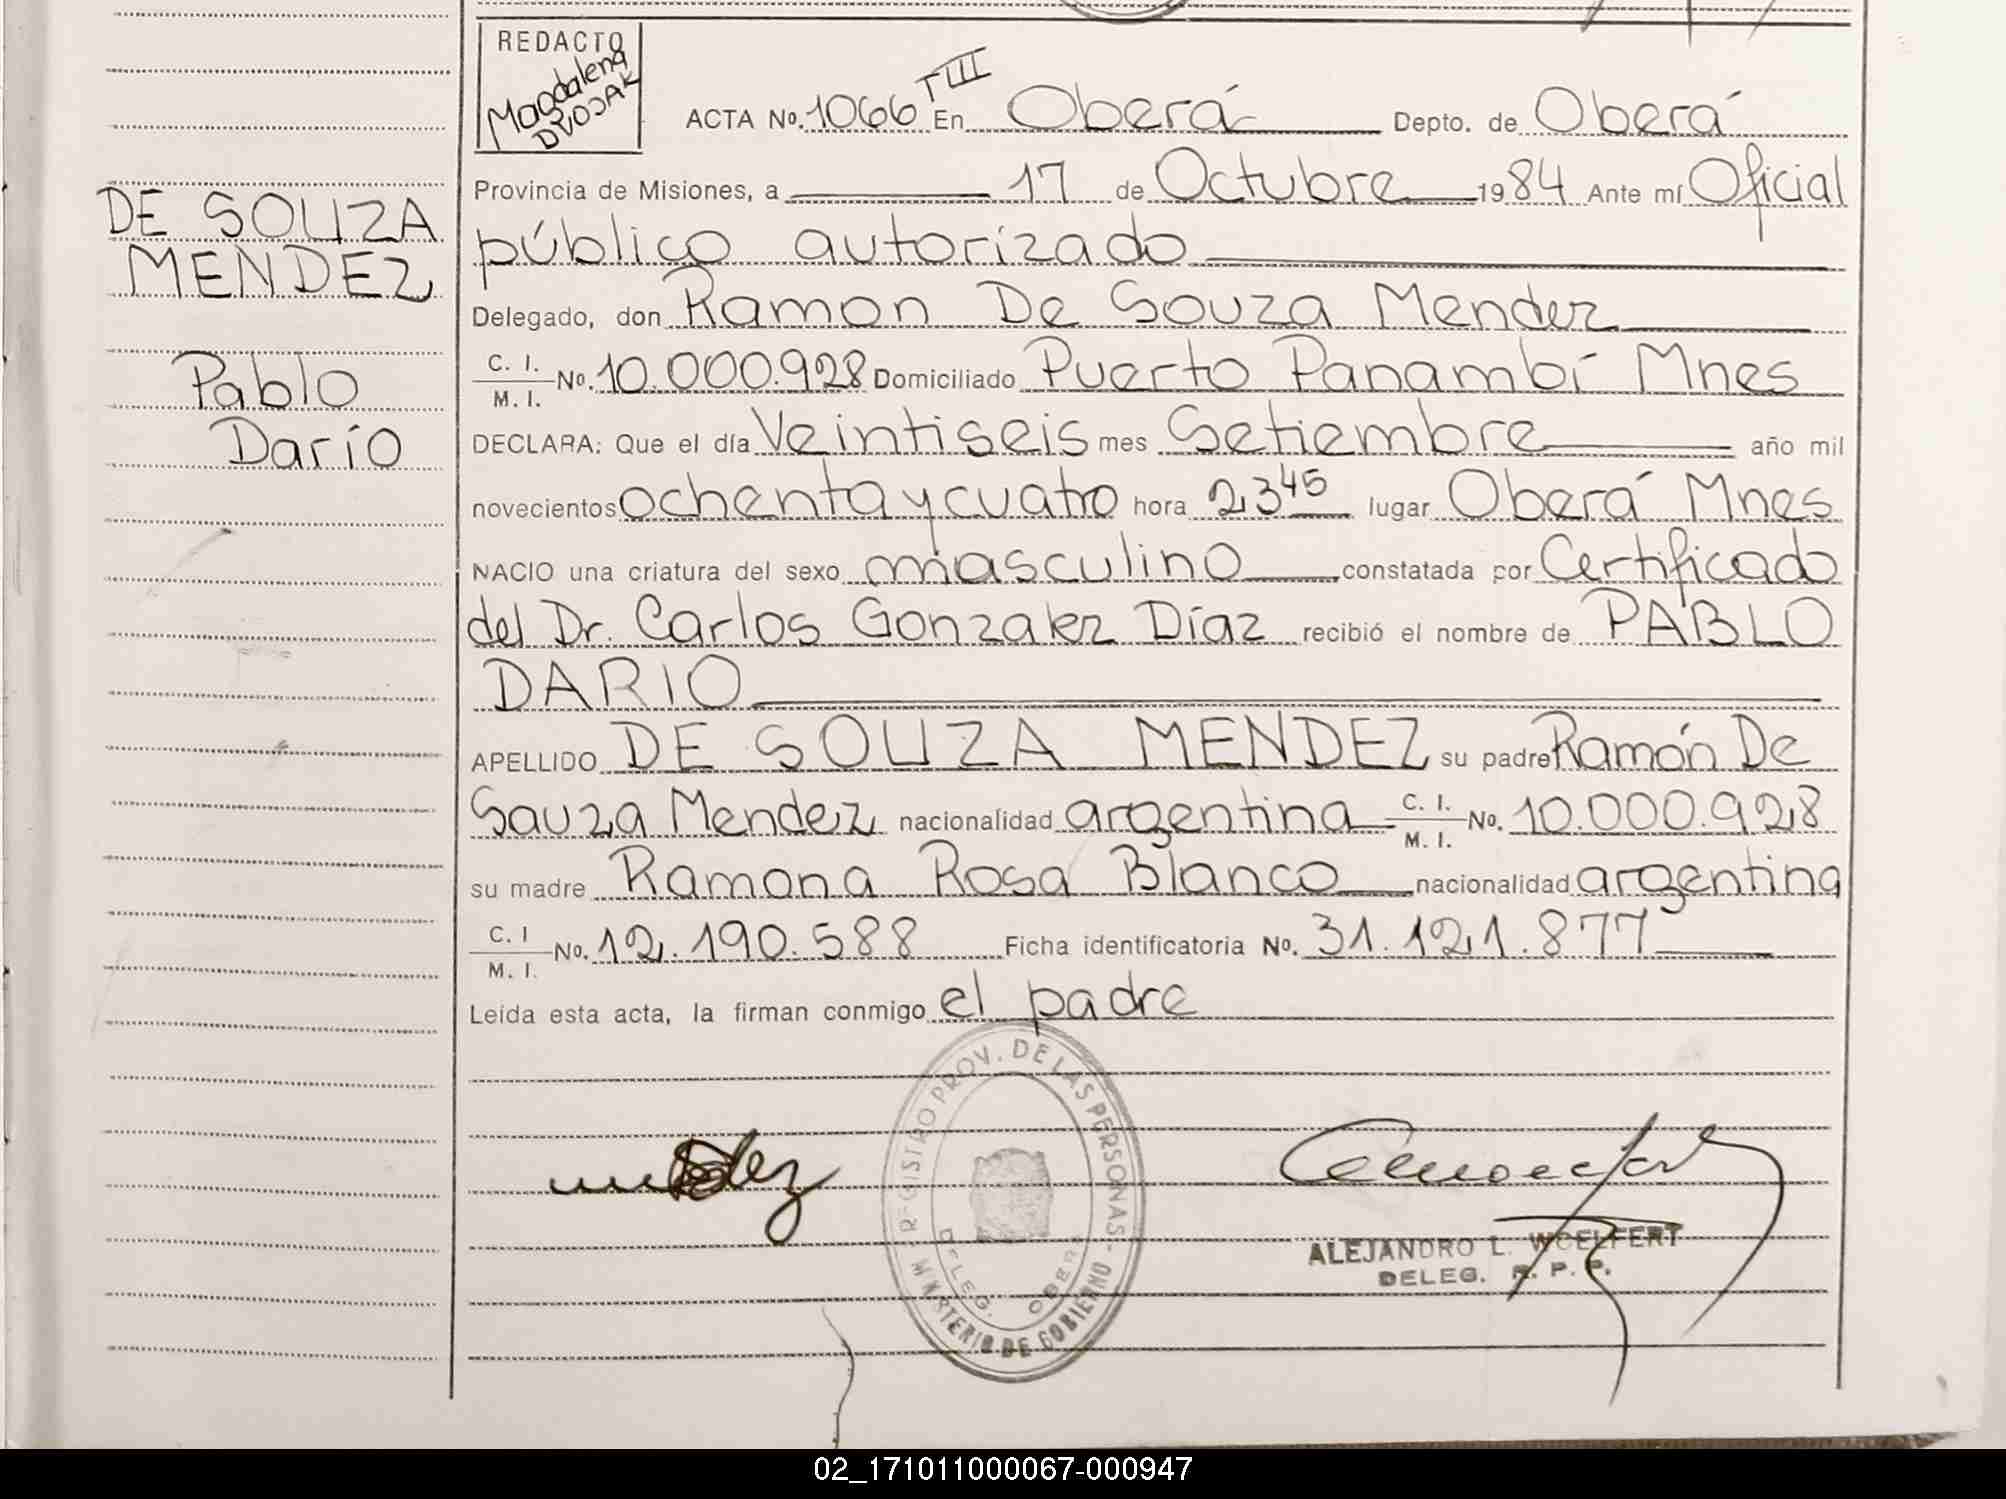 REDACTO
Magdalena
DVOJAK
ACTA No. 1066 TIII En Oberá Depto. de Oberá
Provincia de Misiones, a 17 de Octubre 1984 Ante mí Oficial
público autorizado
DE SOUZA
MENDEZ
Pablo
Darío
Delegado, don Ramon De Souza Mendez
C. I.
M. I. No. 10.000.928 Domiciliado Puerto Panambí Mnes
DECLARA: Que el día Veintiseis mes Setiembre año mil
novecientos ochenta y cuatro hora 23 45 lugar Oberá Mnes
NACIO una criatura del sexo masculino constatada por Certificado
del Dr. Carlos Gonzalez Díaz recibió el nombre de PABLO
DARIO
APELLIDO DE SOUZA MENDEZ su padre Ramón De
Souza Mendez nacionalidad argentina C. I. M. I. No. 10.000.928
su madre Ramona Rosa Blanco nacionalidad argentina
C. I M. I. No. 12.190.588 Ficha identificatoria No. 31.121.877
Leída esta acta, la firman conmigo el padre
REGISTRO PROV. DE LAS PERSONAS - MINISTERIO DE GOBIERNO
DELEG. OBERA
ALEJANDRO L. WOELFERT
DELEG. R. P. P.
02_171011000067-000947